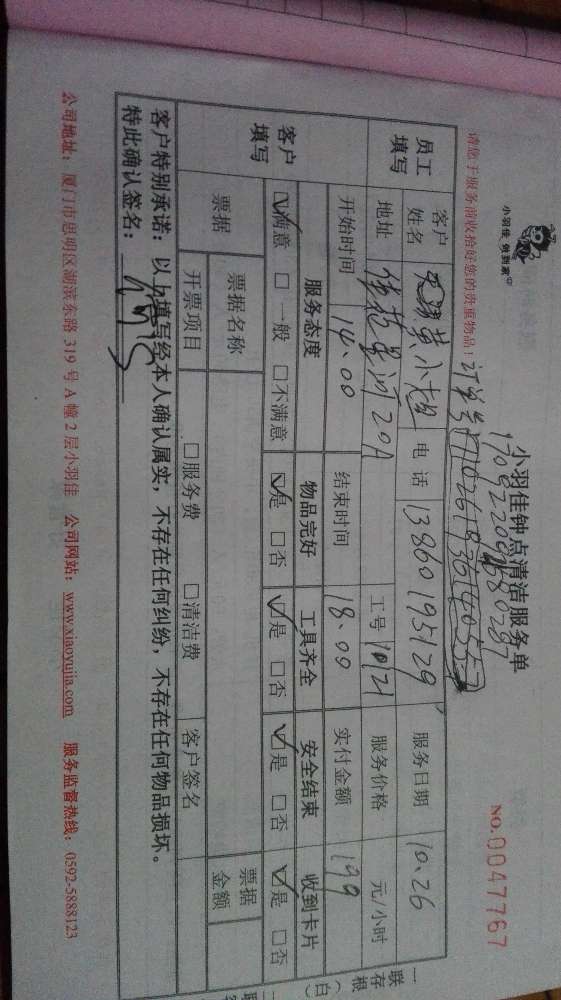 小羽佳 做到家
小羽佳钟点清洁服务单
NO.0047767
请您于服务前收拾好您的贵重物品！
订单号
员工填写
客户姓名 黄小姐 电话 13860195129 服务日期 10.26
地址 20A 工号 1021 服务价格 元/小时
开始时间 14.00 结束时间 18.00 实付金额 199
客户填写
服务态度 物品完好 工具齐全 安全结束 收到卡片
☑满意 □一般 □不满意 ☑是 □否 ☑是 □否 ☑是 □否 ☑是 □否
票据 票据名称 票据金额
开票项目 □服务费 □清洁费 客户签名
客户特别承诺：以上填写经本人确认属实，不存在任何纠纷，不存在任何物品损坏。
特此确认签名：
公司地址：厦门市思明区湖滨东路 319 号 A 幢 2 层小羽佳 公司网站：www.xiaoyujia.com 服务监督热线：0592-5888123
一联存根（白）